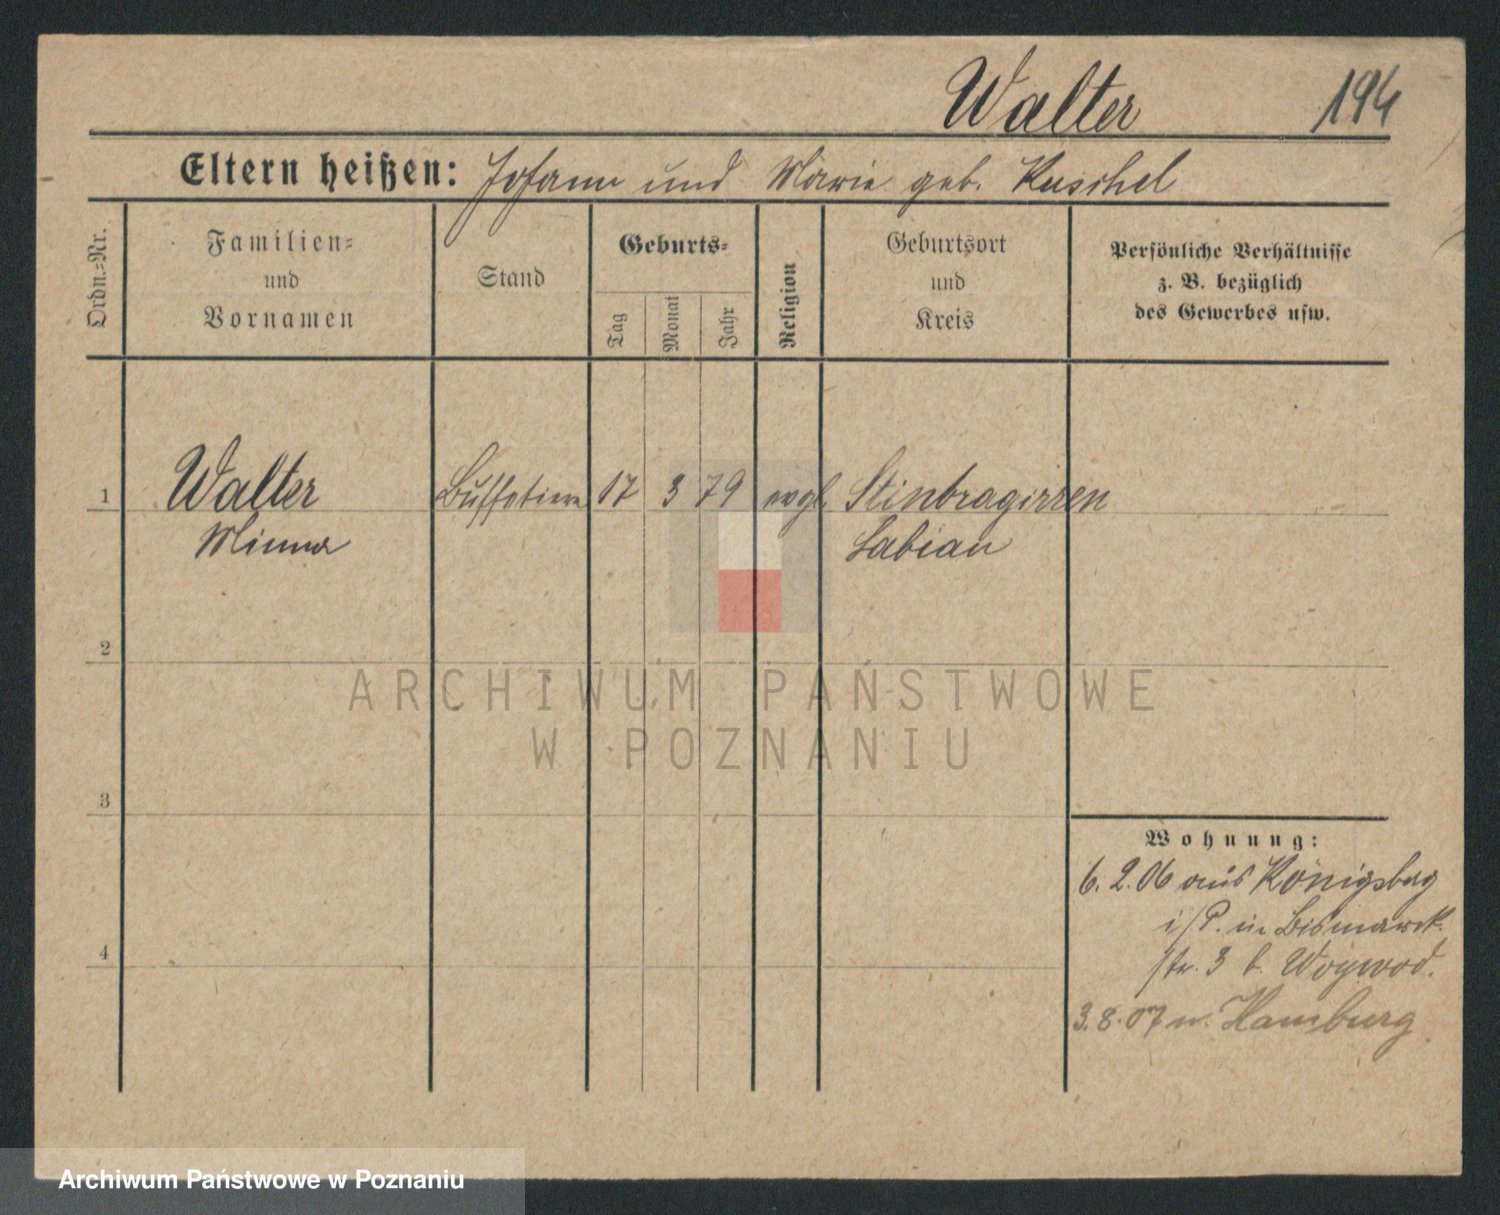 Walter 194
Eltern heißen: Johann und Marie geb. Kuschel
Ordn.=Nr.
Familien=
und
Vornamen
Stand
Geburts=
Tag
Monat
Jahr
Religion
Geburtsort
und
Kreis
Persönliche Verhältnisse
z. B. bezüglich
des Gewerbes usw.
1 Walter Buffetiere 17 3 79 evgl. Stinbragirren
Minna Labiau
2
3
4
Wohnung:
6.2.06 aus Königsbrg
i/P. in Bismarck-
str. 3 b. Woywod.
3.8.07 n. Hamburg
ARCHIWUM PAŃSTWOWE
W POZNANIU
Archiwum Państwowe w Poznaniu